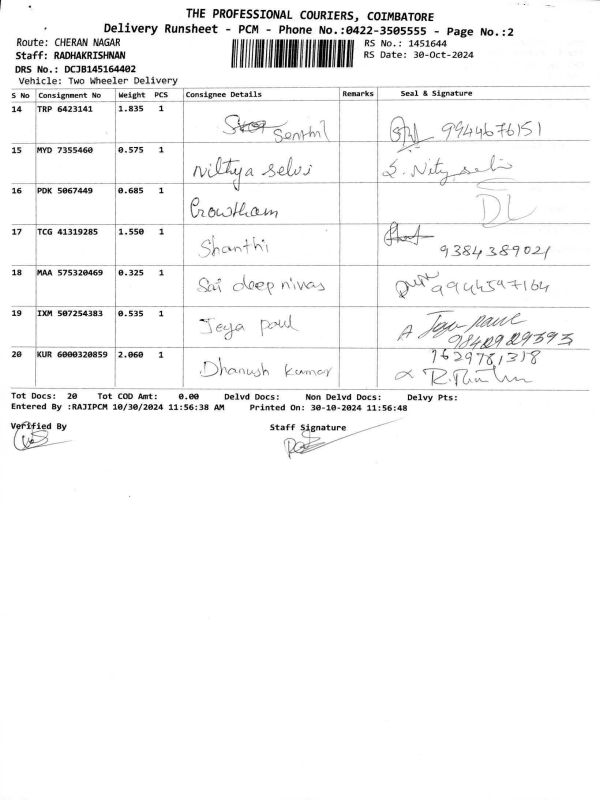 THE PROFESSIONAL COURIERS, COIMBATORE
Delivery Runsheet - PCM - Phone No.:0422-3505555 - Page No.:2
Route: CHERAN NAGAR RS No.: 1451644
Staff: RADHAKRISHNAN RS Date: 30-Oct-2024
DRS No.: DCJB145164402
Vehicle: Two Wheeler Delivery
S No Consignment No Weight PCS Consignee Details Remarks Seal & Signature
14 TRP 6423141 1.835 1 Senthil 9944676151
15 MYD 7355460 0.575 1 Nithya selvi
16 PDK 5067449 0.685 1 Gowtham DL
17 TCG 41319285 1.550 1 Shanthi 9384389021
18 MAA 575320469 0.325 1 Sai deep nivas 9944597164
19 IXM 507254383 0.535 1 Jeya paul Jeya paul
9842929393
20 KUR 6000320859 2.060 1 Dhanush kumar 7629781318
Tot Docs: 20 Tot COD Amt: 0.00 Delvd Docs: Non Delvd Docs: Delvy Pts:
Entered By :RAJIPCM 10/30/2024 11:56:38 AM Printed On: 30-10-2024 11:56:48
Verified By Staff Signature